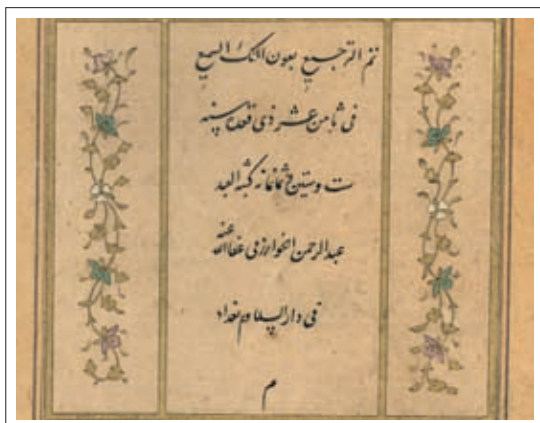 تم الترجیع بعون الملک السمیع
فی ثامن عشر ذی قعدة سنه
ست وستین و ثمانمائه کتبه العبد
عبدالرحمن الخوارزمی عفا الله عنه
فی دار السلام بغداد
م